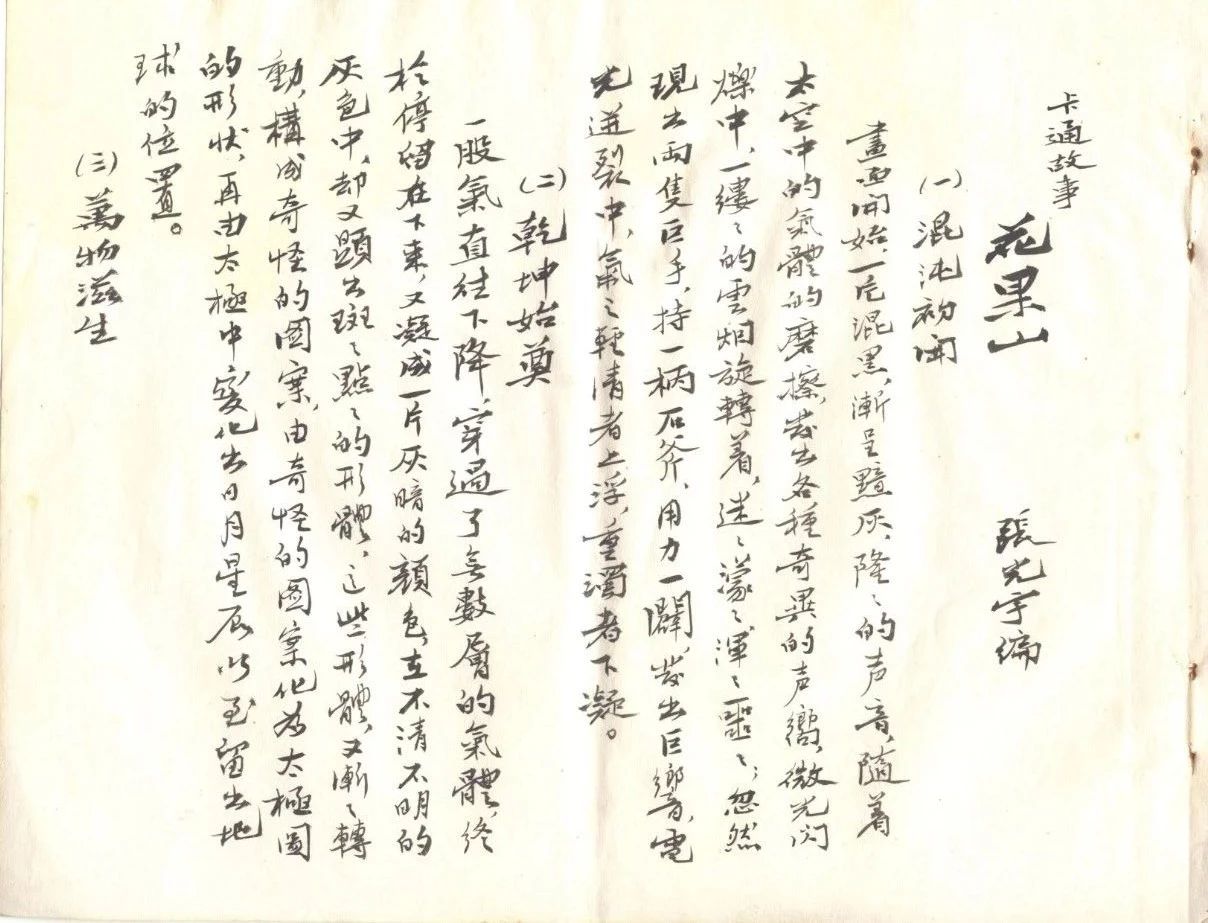 卡通故事
花果山　張光宇編
(一)混沌初開
畫面開始，一片混黑，漸呈黯灰，隆〻的声音，隨着
太空中的氣體的磨擦，发出各種奇異的声嚮，微光闪
爍中，一縷〻的雲烟旋轉着，迷〻濛〻渾〻噩〻；忽然
現出兩隻巨手，持一柄石斧，用力一闢，发出巨響，電
光迸裂中，氣之輕清者上浮，重濁者下凝。
(二)乾坤始奠
一股氣直往下降，穿過了無數層的氣體，終
於停留在下來，又凝成一片灰暗的顔色，在不清不明的
灰色中，却又顕出斑〻點〻的形體，这些形體，又漸〻轉
動，構成奇怪的圖案，由奇怪的圖案化为太極圖
的形状，再由太極中变化出日月星辰以至留出地
球的位置。
(三)萬物滋生